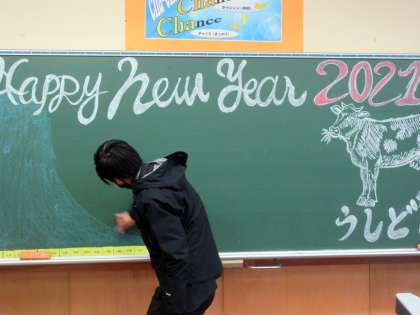 Chance
Chance
Happy New Year 2021
うしど